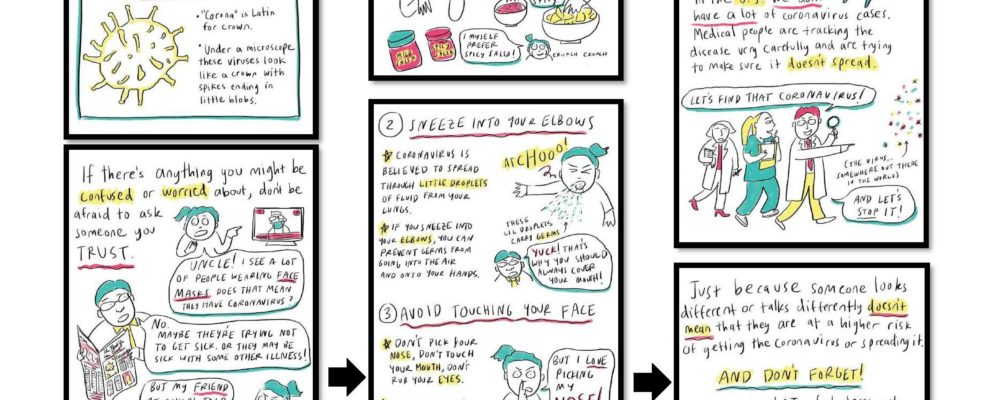 • "Corona" is Latin
for crown.
• Under a microscope
these viruses look
like a crown with
spikes ending in
little blobs.
If there's anything you might be
confused or worried about, don't be
afraid to ask
someone you
TRUST.
UNCLE! I SEE A LOT
OF PEOPLE WEARING FACE
MASKS DOES THAT MEAN
THEY HAVE CORONAVIRUS?
NO.
MAYBE THEY'RE TRYING NOT
TO GET SICK. OR THEY MAY BE
SICK WITH SOME OTHER ILLNESS!
BUT MY FRIEND
I MYSELF
PREFER
SPICY SALSA!
CRUNCH CRUNCH
2 SNEEZE INTO YOUR ELBOWS
CORONAVIRUS IS
BELIEVED TO SPREAD
THROUGH LITTLE DROPLETS
OF FLUID FROM YOUR
LUNGS.
ATCHOOO!
IF YOU SNEEZE INTO
YOUR ELBOWS, YOU CAN
PREVENT GERMS FROM
GOING INTO THE AIR
AND ONTO YOUR HANDS.
THESE
LIL DROPLETS
CARRY GERMS
YUCK! THAT'S
WHY YOU SHOULD
ALWAYS COVER
YOUR MOUTH!
3 AVOID TOUCHING YOUR FACE
DON'T PICK YOUR
NOSE, DON'T TOUCH
YOUR MOUTH, DON'T
RUB YOUR EYES.
BUT I LOVE
PICKING
MY
NOSE!
have a lot of coronavirus cases.
Medical people are tracking the
disease very carefully and are trying
to make sure it doesn't spread.
LET'S FIND THAT CORONAVIRUS!
(THE VIRUS...
SOMEWHERE OUT THERE
IN THE WORLD)
AND LET'S
STOP IT!
Just because someone looks
different or talks differently doesn't
mean that they are at a higher risk
of getting the coronavirus or spreading it.
AND DON'T FORGET!